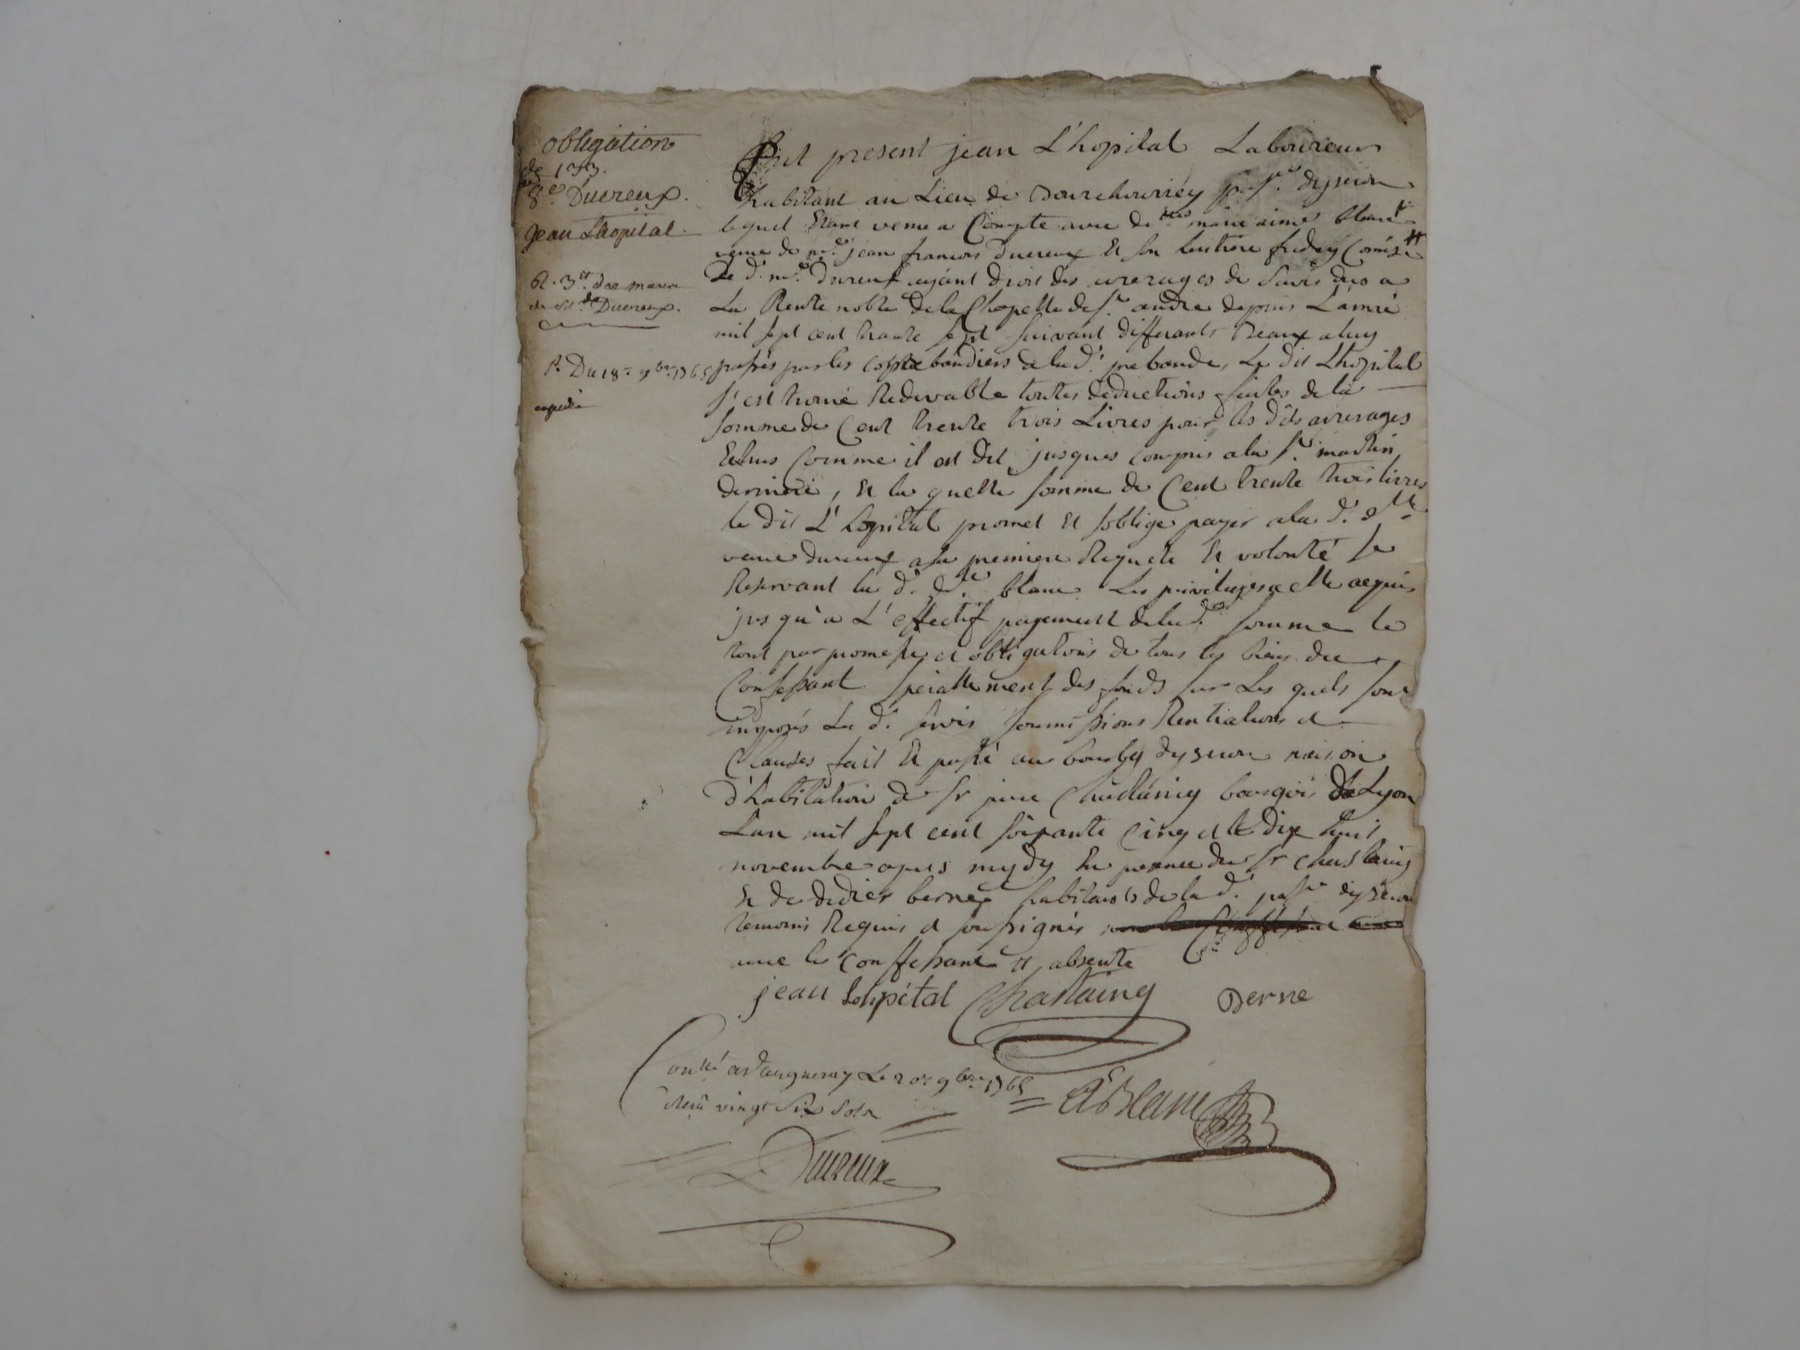 obligation
de 133.
Ducreux.
Jean Lhopital
de Ducreux.
Du 18e 9bre 1765
expedié
Fut present jean L'hopital Laboureur
habitant au Lieu de
lequel Etant venu a Compte avec marie aimé blanc
veuve de jean francois ducreux Et son heritiere
ducreux ayant droit des arrerages de servis dus a
La Rente noble de la Chapelle de st andré depuis L'année
mil sept cent trente sept suivant differants Beaux a luy
passés par les de la de prebande, Le dit Lhopital
s'est trouvé Redevable toutes deductions faites de la
somme de Cent trente trois Livres pour les dits arrerages
Echus Comme il est dit jusques compris a la st martin
derniere, Et la quelle somme de Cent trente trois livres
le dit L'hopital promet Et s'oblige payer a la de dlle
veuve ducreux a sa premiere Requete Et volonté se
Reservant la de dlle blanc Les privileges a elle acquis
jusqu'a L'effectif payement de la de somme le
tout par promesse et obligations de tous les biens du
Confessant speciallement des fonds sur Les quels sont
imposés Les ds servis soumissions Rentiations et
Clauses fait Et passé au bourg dyzeron maison
d'habitation de sr Chastaing bourgois de Lyon
L'an mil sept cent soixante Cinq et le dix huit
novembre apres mydy En presence du sr chastaing
Et de didier berne habitants de la de psse dyzeron
temoins Requis et soussignés
avec le Confessant absente
jean Lohpétal Chastaing Berne
Conllé a Le 20e 9bre 1765
Reçu vingt six sols
A Blanc
Ducreux